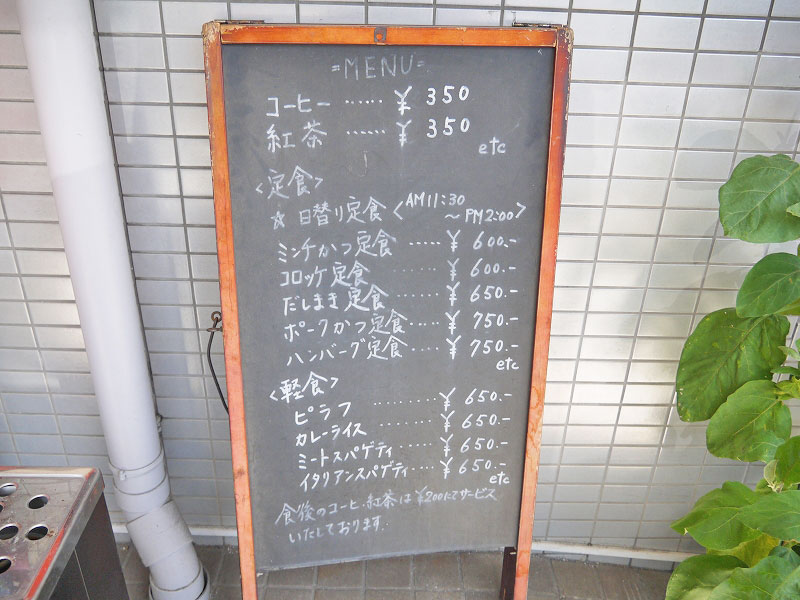 =MENU=
コーヒー ‥‥‥ ¥ 350
紅茶 ‥‥‥ ¥ 350
etc
<定食>
☆ 日替り定食 <AM11:30
～PM2:00>
ミンチかつ定食 ‥‥‥ ¥ 600.-
コロッケ定食 ‥‥‥ ¥ 600.-
だしまき定食 ‥‥‥ ¥ 650.-
ポークかつ定食 ‥‥ ¥ 750.-
ハンバーグ定食 ‥‥ ¥ 750.-
etc
<軽食>
ピラフ ‥‥‥‥ ¥ 650.-
カレーライス ‥‥‥‥ ¥ 650.-
ミートスパゲティ ‥‥‥ ¥ 650.-
イタリアンスパゲティ ‥‥ ¥ 650.-
etc
食後のコーヒ、紅茶は¥200にてサービス
いたしております.